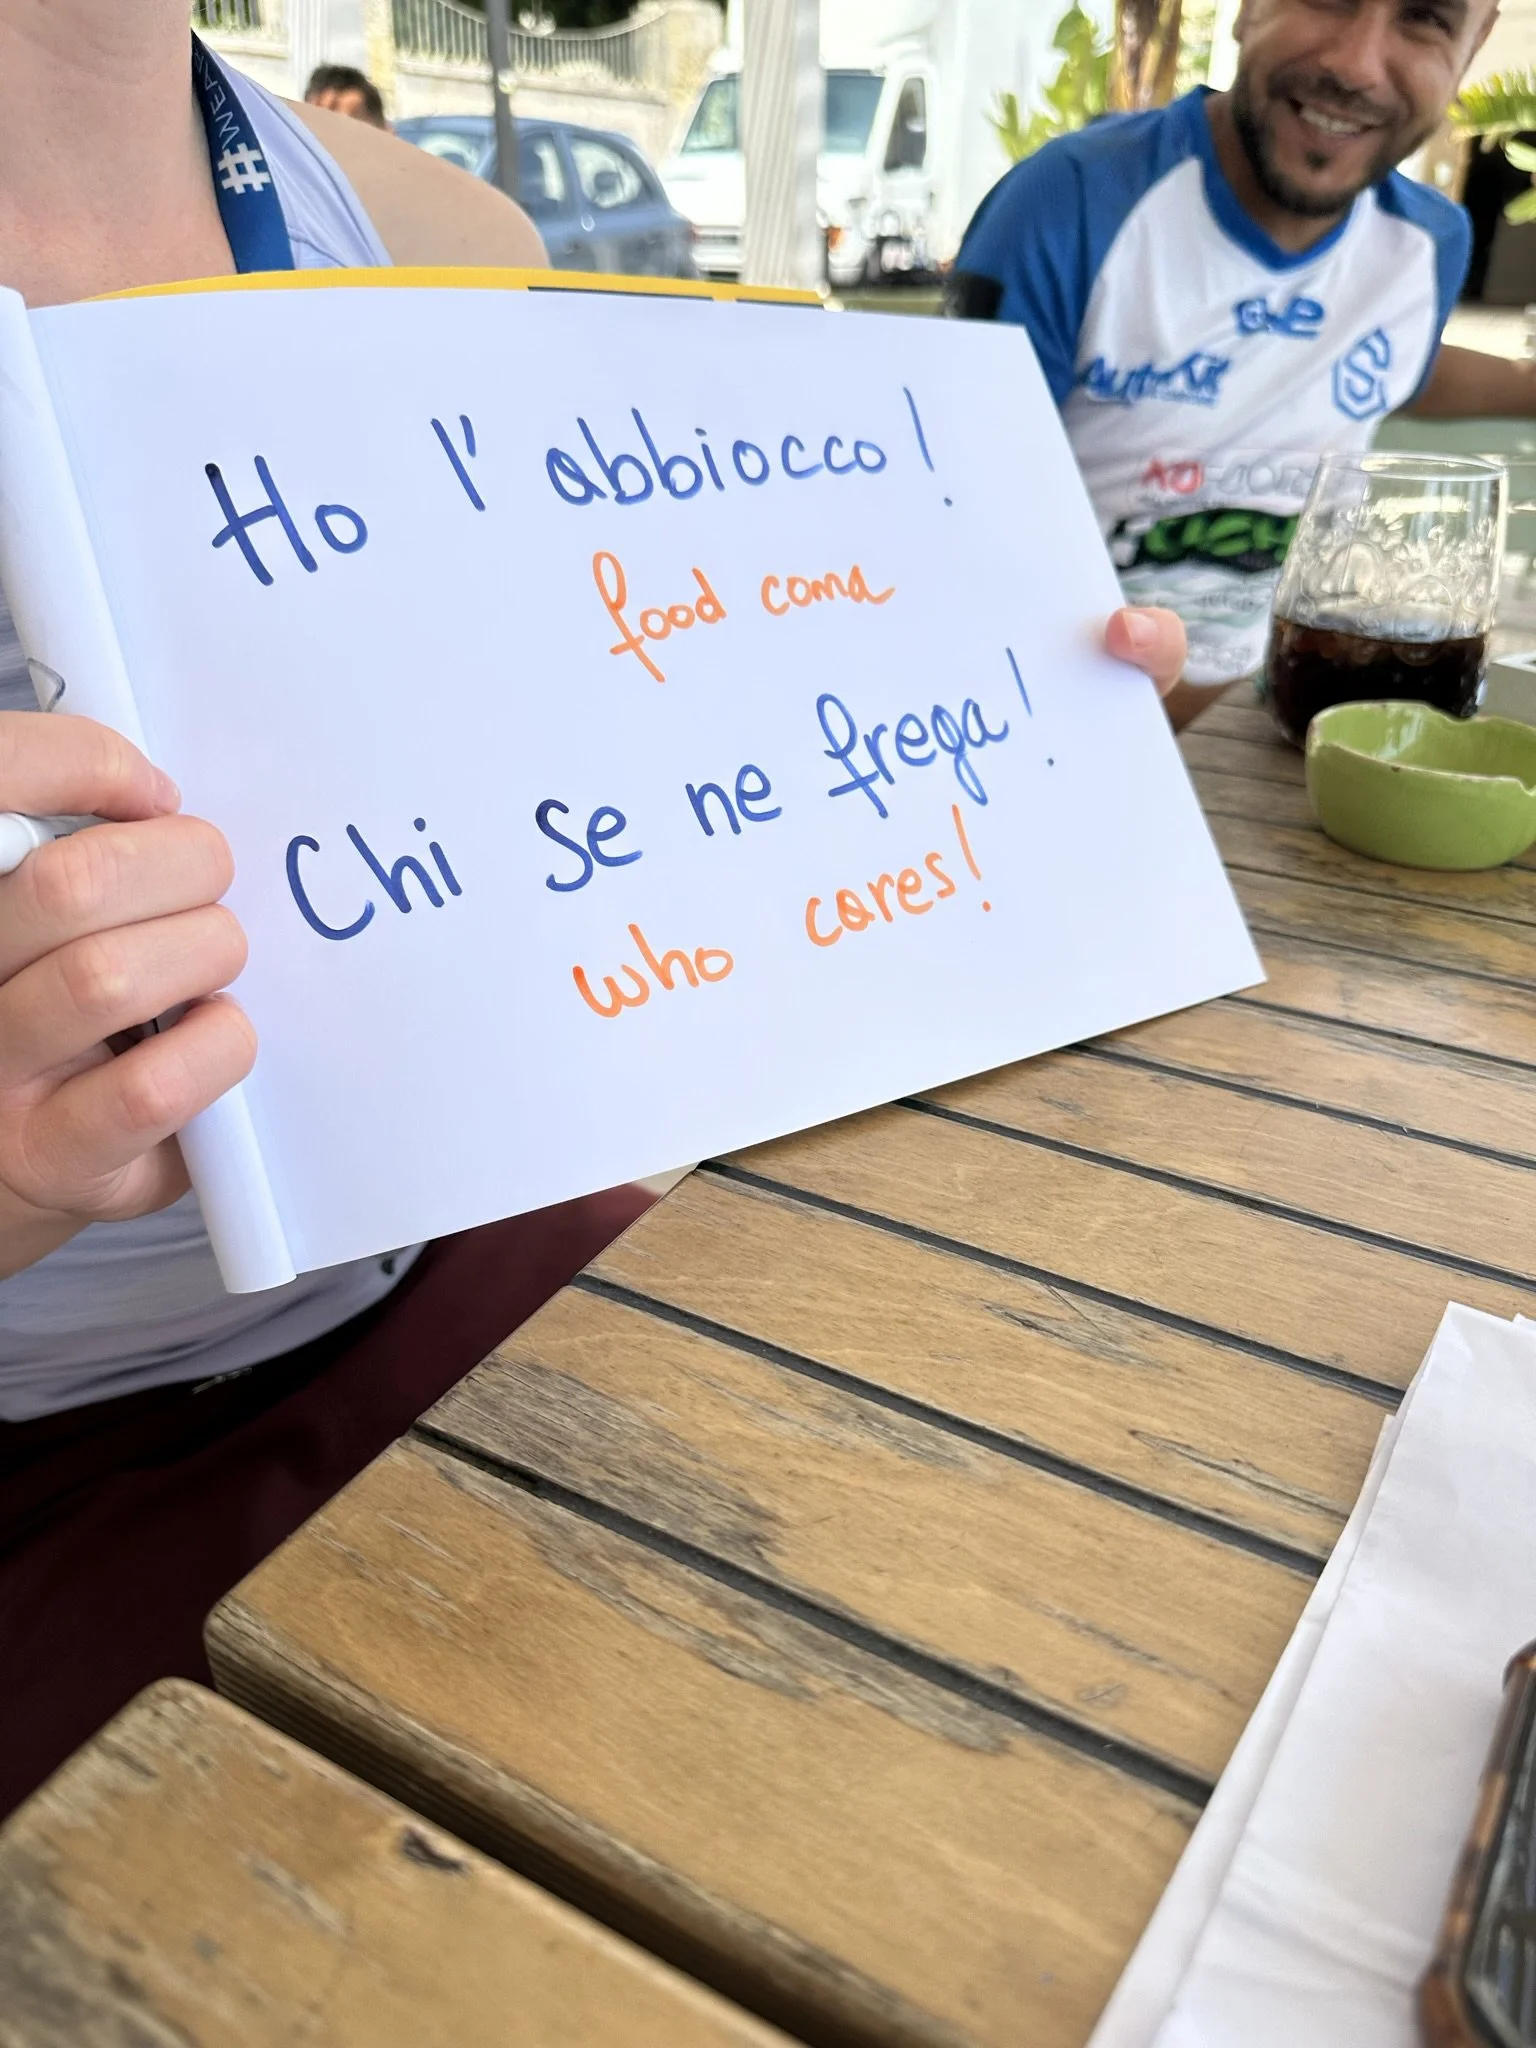 #WEAR
Ho l'abbiocco!
food coma
Chi se ne frega!
who cares!
S